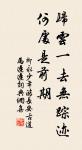 歸雲一去無踪迹
何處是前期
柳永少年游長安古道
馬遲遲詞